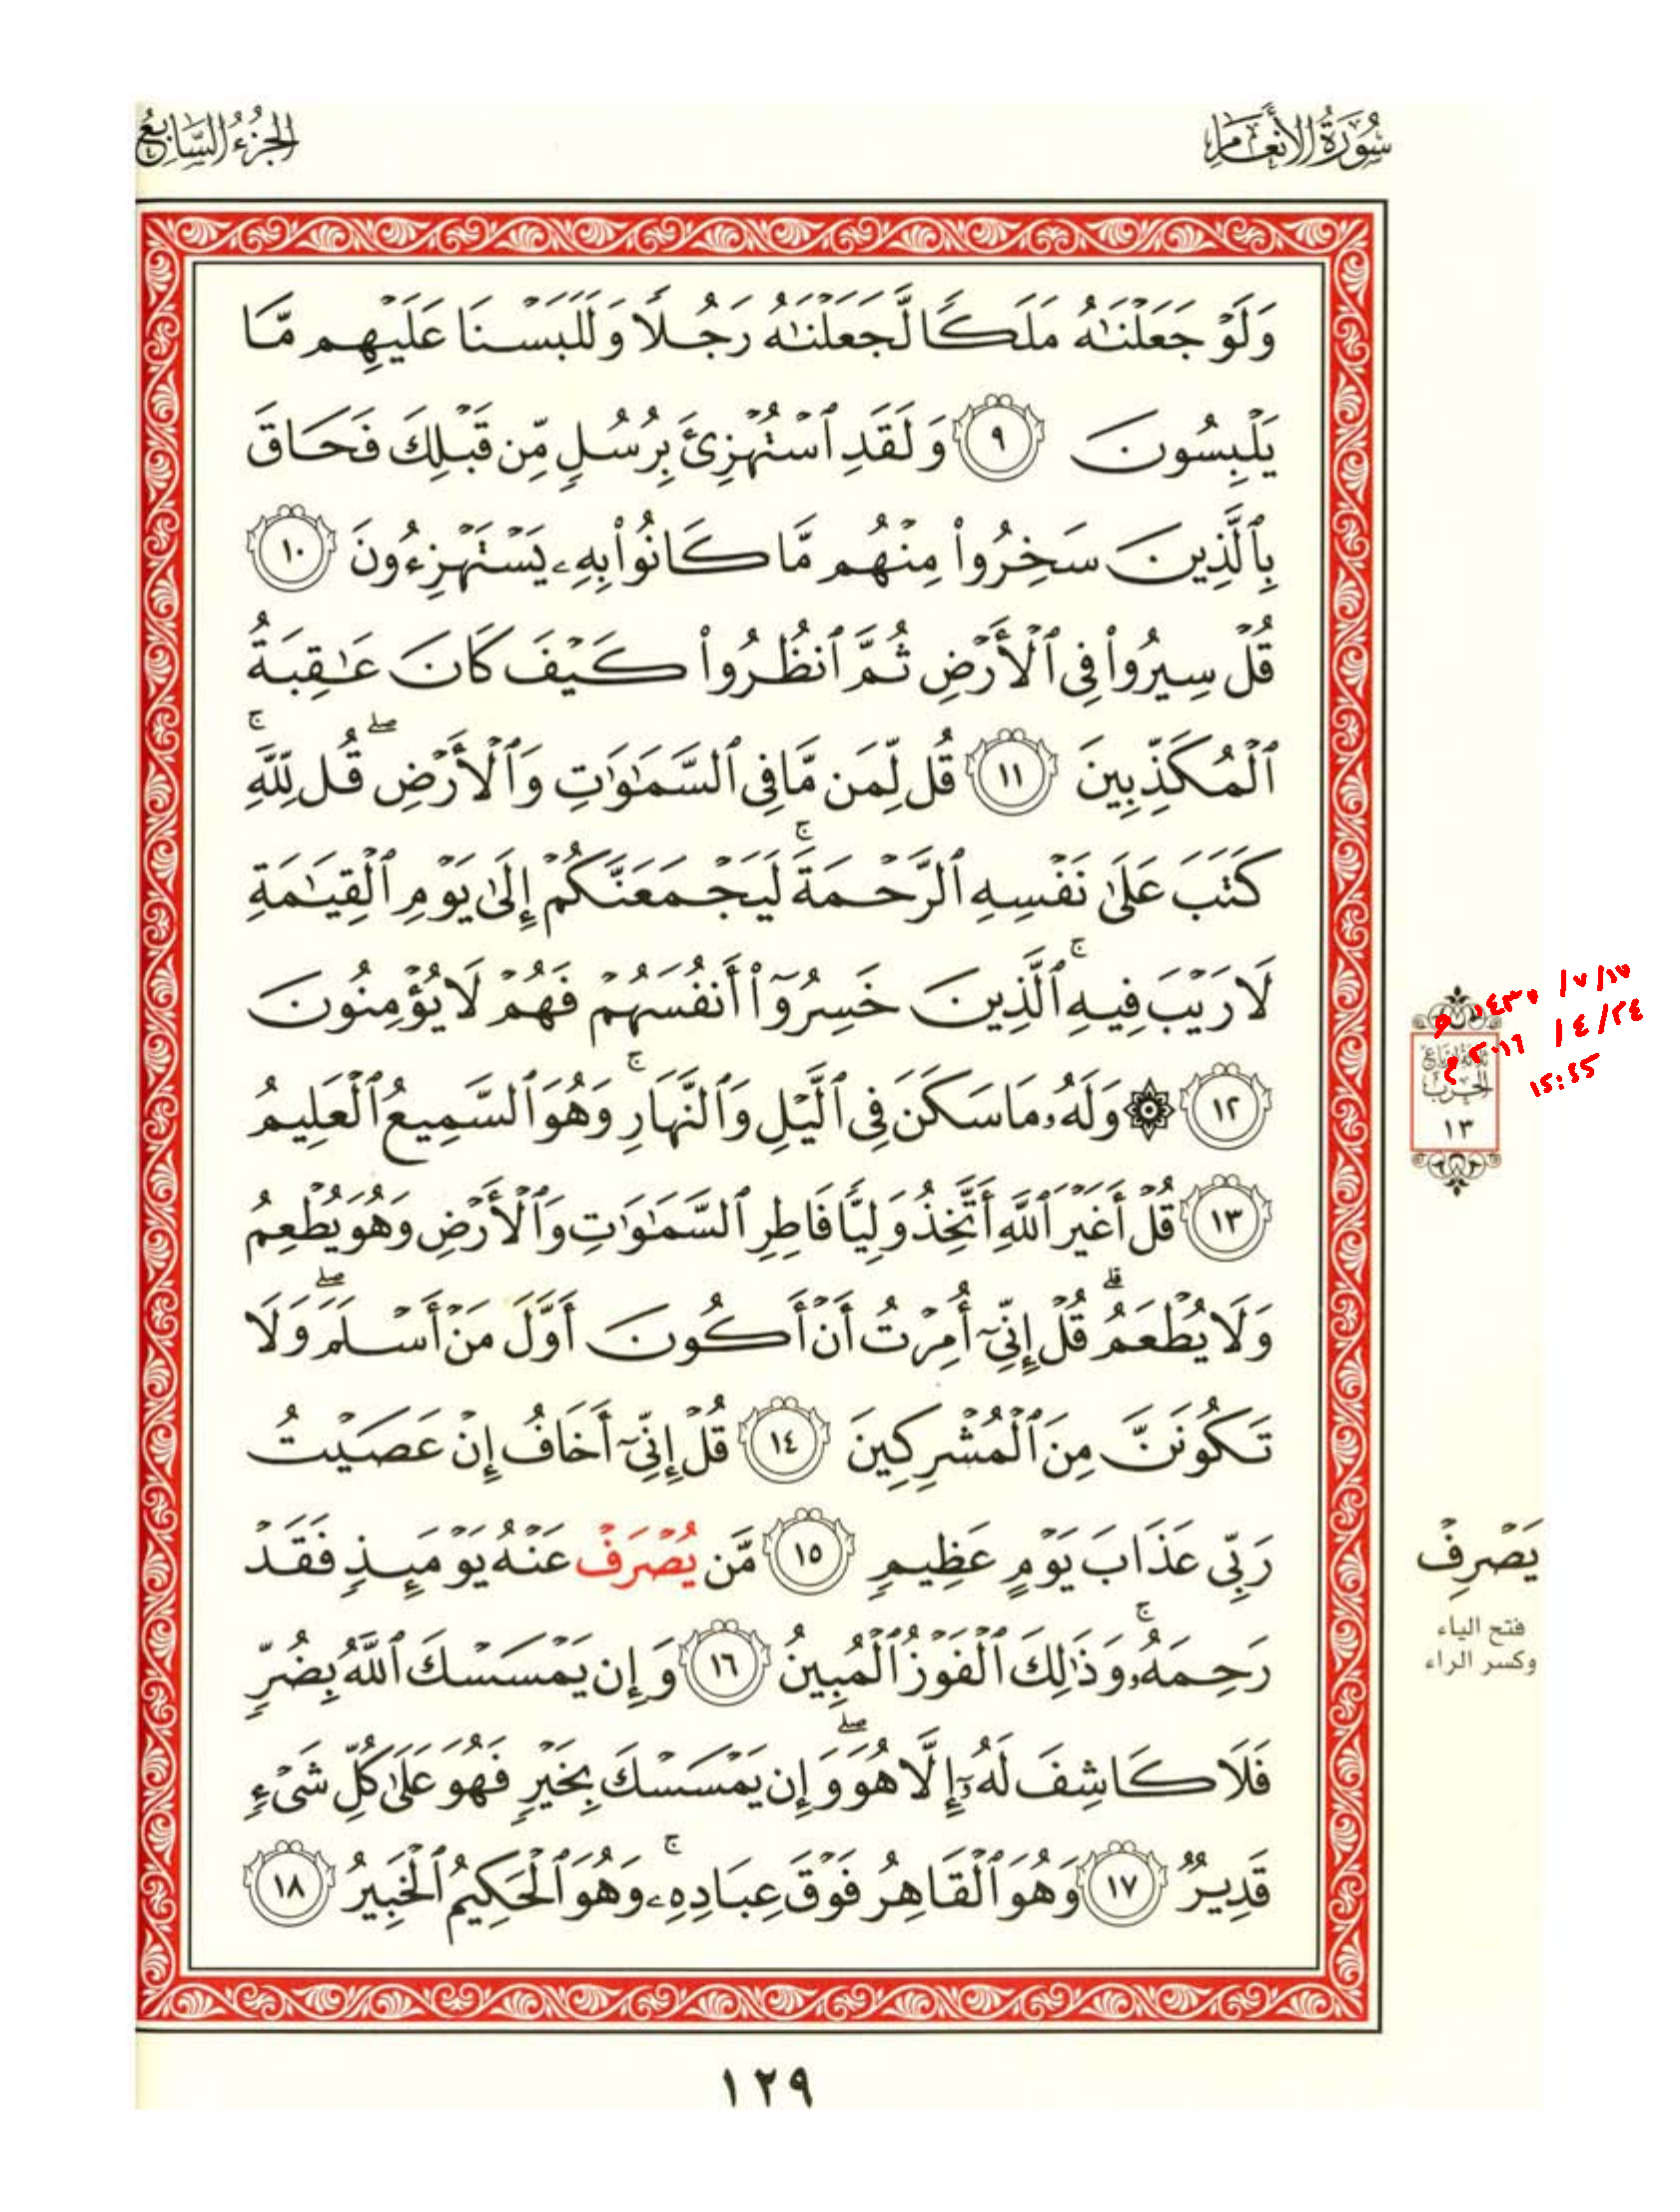 سُورَةُ الأَنْعَامِ
الجُزْءُ السَّابِعُ
وَلَوْ جَعَلْنَٰهُ مَلَكًا لَّجَعَلْنَٰهُ رَجُلًا وَلَلَبَسْنَا عَلَيْهِم مَّا
يَلْبِسُونَ ٩ وَلَقَدِ ٱسْتُهْزِئَ بِرُسُلٍ مِّن قَبْلِكَ فَحَاقَ
بِٱلَّذِينَ سَخِرُوا۟ مِنْهُم مَّا كَانُوا۟ بِهِۦ يَسْتَهْزِءُونَ ١٠
قُلْ سِيرُوا۟ فِى ٱلْأَرْضِ ثُمَّ ٱنظُرُوا۟ كَيْفَ كَانَ عَٰقِبَةُ
ٱلْمُكَذِّبِينَ ١١ قُل لِّمَن مَّا فِى ٱلسَّمَٰوَٰتِ وَٱلْأَرْضِ ۖ قُل لِّلَّهِ ۚ
كَتَبَ عَلَىٰ نَفْسِهِ ٱلرَّحْمَةَ ۚ لَيَجْمَعَنَّكُمْ إِلَىٰ يَوْمِ ٱلْقِيَٰمَةِ
لَا رَيْبَ فِيهِ ۚ ٱلَّذِينَ خَسِرُوٓا۟ أَنفُسَهُمْ فَهُمْ لَا يُؤْمِنُونَ
١٢ ۞ وَلَهُۥ مَا سَكَنَ فِى ٱلَّيْلِ وَٱلنَّهَارِ ۚ وَهُوَ ٱلسَّمِيعُ ٱلْعَلِيمُ
١٣ قُلْ أَغَيْرَ ٱللَّهِ أَتَّخِذُ وَلِيًّا فَاطِرِ ٱلسَّمَٰوَٰتِ وَٱلْأَرْضِ وَهُوَ يُطْعِمُ
وَلَا يُطْعَمُ ۗ قُلْ إِنِّىٓ أُمِرْتُ أَنْ أَكُونَ أَوَّلَ مَنْ أَسْلَمَ ۖ وَلَا
تَكُونَنَّ مِنَ ٱلْمُشْرِكِينَ ١٤ قُلْ إِنِّىٓ أَخَافُ إِنْ عَصَيْتُ
رَبِّى عَذَابَ يَوْمٍ عَظِيمٍ ١٥ مَّن يُصْرَفْ عَنْهُ يَوْمَئِذٍ فَقَدْ
رَحِمَهُۥ ۚ وَذَٰلِكَ ٱلْفَوْزُ ٱلْمُبِينُ ١٦ وَإِن يَمْسَسْكَ ٱللَّهُ بِضُرٍّ
فَلَا كَاشِفَ لَهُۥٓ إِلَّا هُوَ ۖ وَإِن يَمْسَسْكَ بِخَيْرٍ فَهُوَ عَلَىٰ كُلِّ شَىْءٍ
قَدِيرٌ ١٧ وَهُوَ ٱلْقَاهِرُ فَوْقَ عِبَادِهِۦ ۚ وَهُوَ ٱلْحَكِيمُ ٱلْخَبِيرُ ١٨
الحزب
١٣
يَصْرِفْ
فتح الياء
وكسر الراء
١٢٩